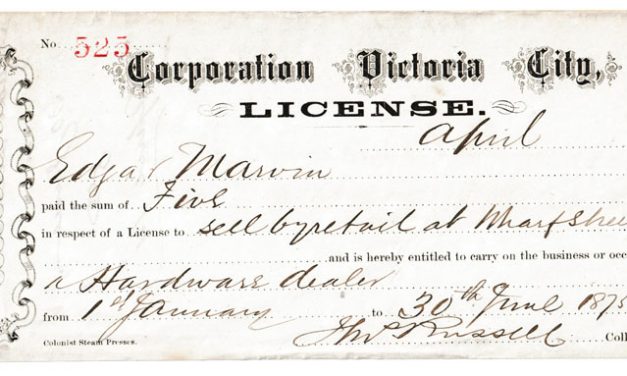 No. 525
Corporation Victoria City,
LICENSE.
April
Edgar Marvin
paid the sum of Five
in respect of a License to sell by retail at Wharf
and is hereby entitled to carry on the business or
a Hardware dealer
from 1st January to 30th June
Russell
Colonist Steam Presses.